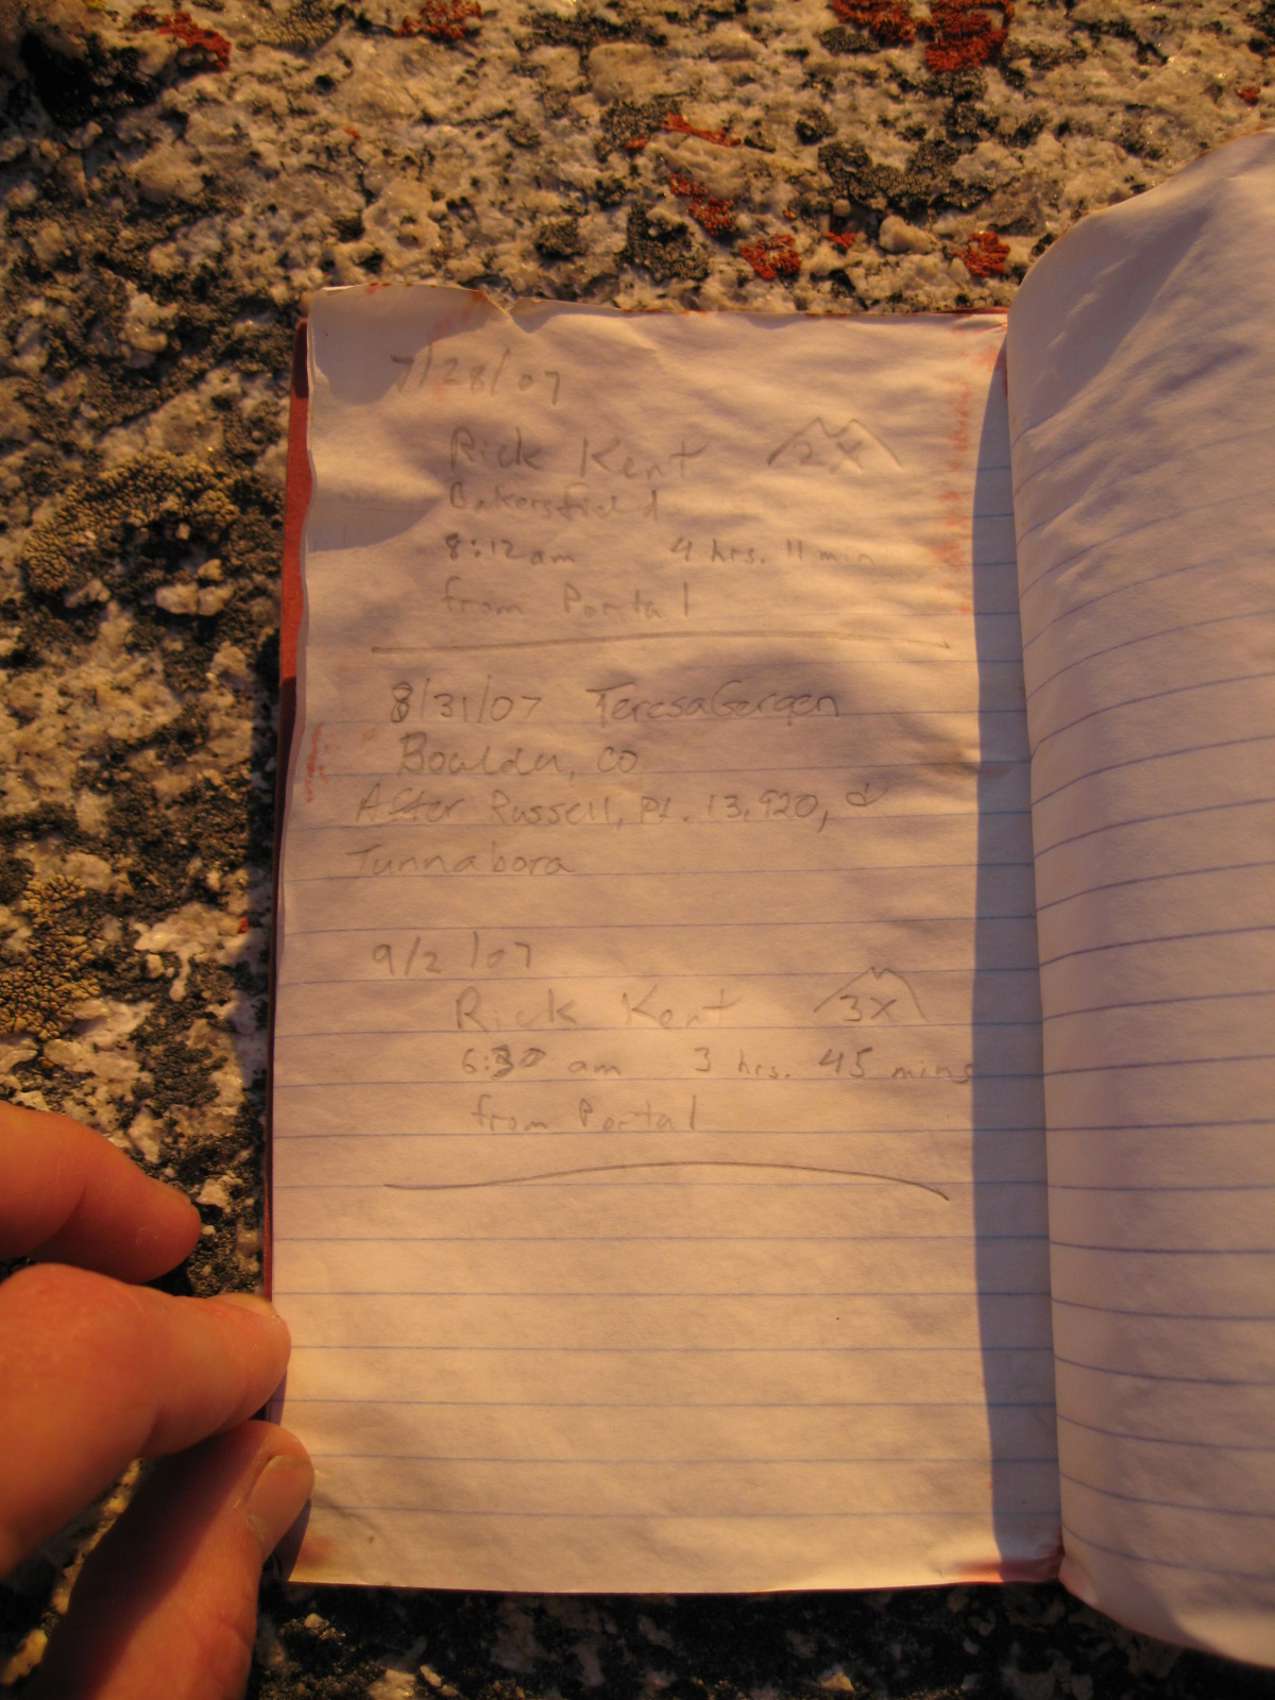 7/28/07
Rick Kent 2x
Bakersfield
8:12 am 4 hrs. 11 min
from Portal
8/31/07 Teresa Gergen
Boulder, CO
After Russell, Pt. 13,920, &
Tunnabora
9/2/07
Rick Kent 3x
6:30 am 3 hrs. 45 mins
from Portal